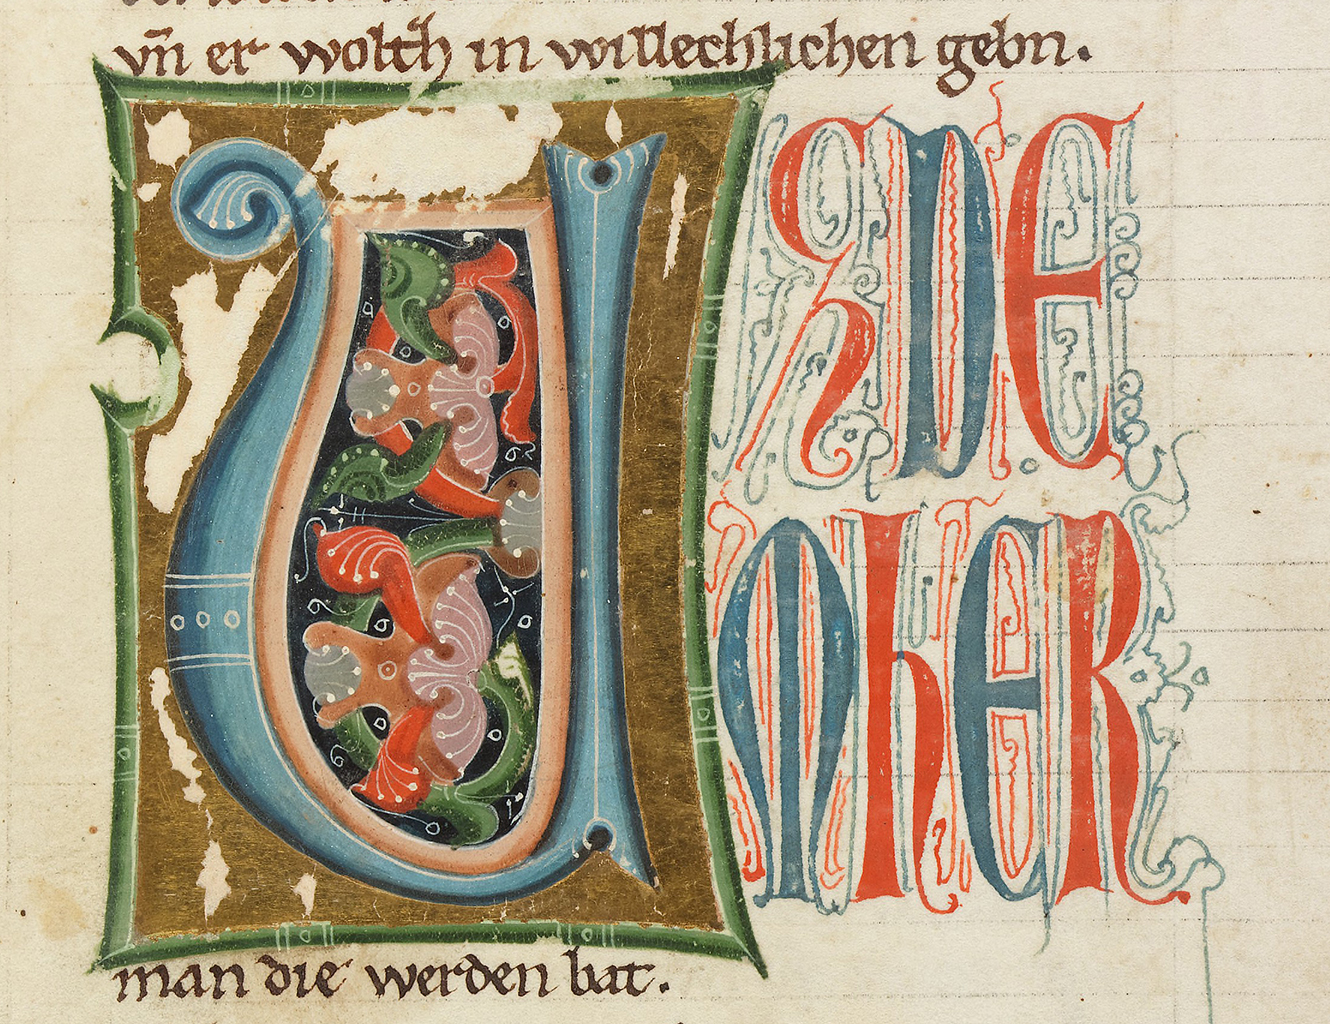 vn̄ er wolth in willechlichen gebn.
UZDE
MhER
man die werden bat.